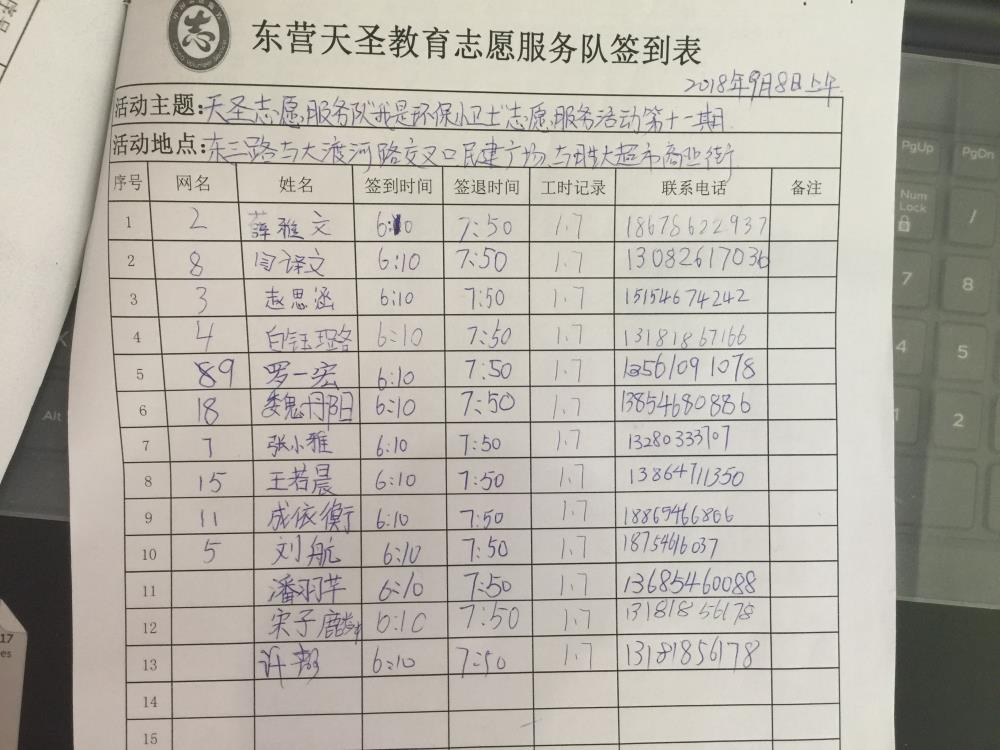 东营天圣教育志愿服务队签到表
2018年9月8日上午
活动主题:天圣志愿服务队"我是环保小卫士"志愿服务活动第十一期
活动地点:东三路与大渡河路交叉口民建广场,与胜大超市商业街
序号 网名 姓名 签到时间 签退时间 工时记录 联系电话 备注
1 2 薛雅文 6:10 7:50 1.7 18678622937
2 8 闫译文 6:10 7:50 1.7 13082617036
3 3 赵思涵 6:10 7:50 1.7 15154674242
4 4 白钰璐 6:10 7:50 1.7 13181867166
5 89 罗一宏 6:10 7:50 1.7 13561091078
6 18 魏丹阳 6:10 7:50 1.7 13854680886
7 7 张小雅 6:10 7:50 1.7 13280333707
8 15 王若晨 6:10 7:50 1.7 13864711350
9 11 成依衡 6:10 7:50 1.7 18869466866
10 5 刘航 6:10 7:50 1.7 18754616037
11 潘羽芊 6:10 7:50 1.7 13685460088
12 宋子麟 6:10 7:50 1.7 13181856178
13 许 6:10 7:50 1.7 13181856178
14
15
PgUp
PgDn
Num
Lock
/
7
8
4
5
1
2
Alt
17
es